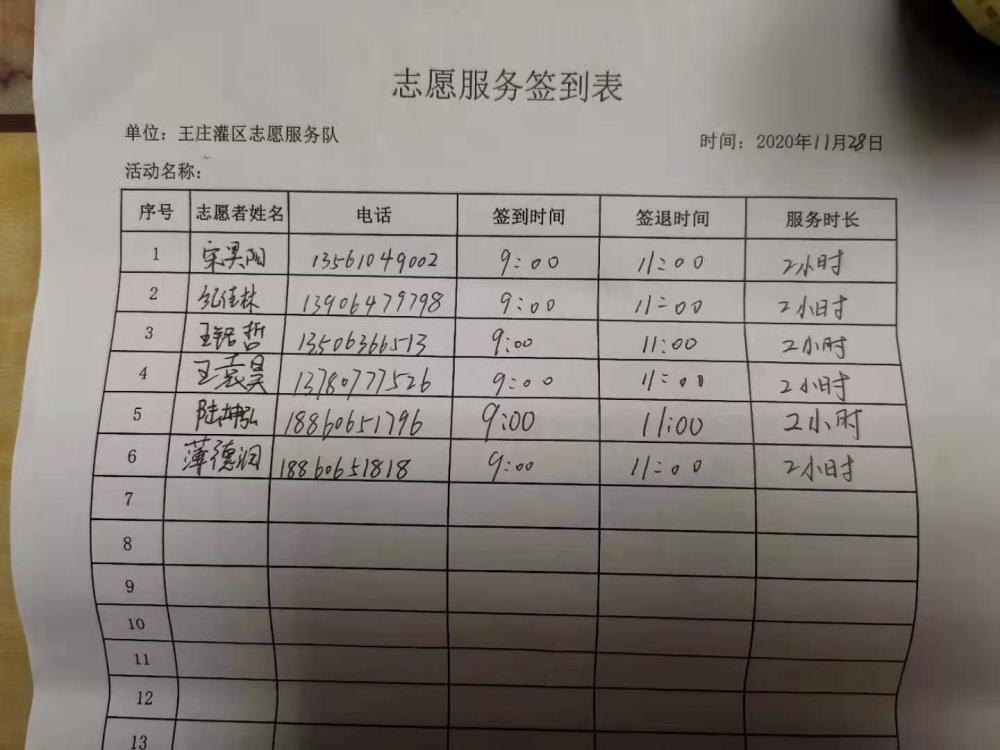 志愿服务签到表
单位：王庄灌区志愿服务队
时间：2020年11月28日
活动名称：
序号 志愿者姓名 电话 签到时间 签退时间 服务时长
1 宋昊阳 13561049002 9:00 11:00 2小时
2 纪佳林 13906479798 9:00 11:00 2小时
3 王铭哲 13506366513 9:00 11:00 2小时
4 王袁昊 13780777526 9:00 11:00 2小时
5 陆 弘 18860651796 9:00 11:00 2小时
6 薄德润 18860651818 9:00 11:00 2小时
7
8
9
10
11
12
13